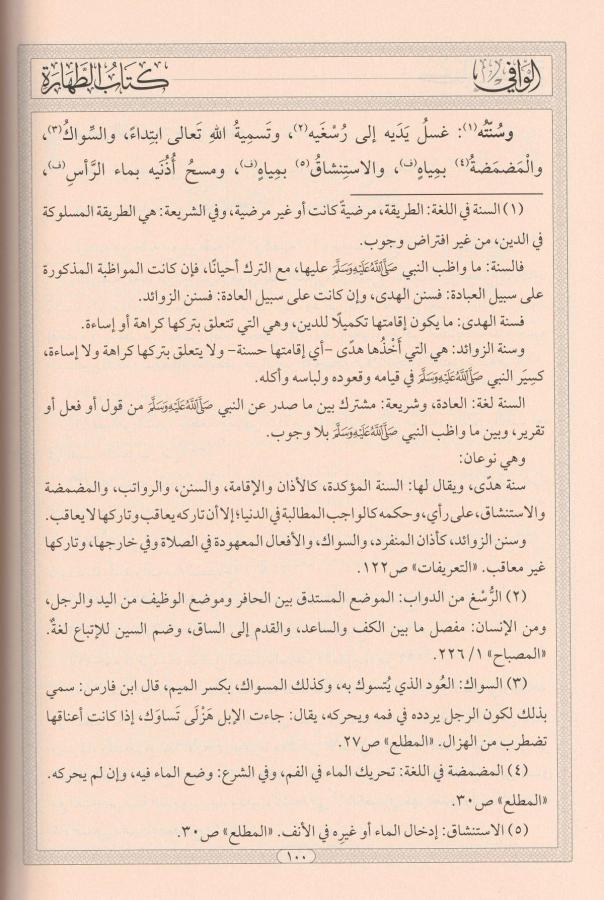 الوافي
كتاب الطهارة
وسُنَّتُه(١): غسلُ يَدَيه إلى رُسْغَيه(٢)، وتَسمِيةُ اللهِ تَعالى ابتِداءً، والسِّواكُ(٣)،
والْمَضمَضةُ(٤) بمِياهٍ(ف)، والاستِنشاقُ(٥) بمِياهٍ(ف)، ومسحُ أُذُنَيه بماء الرَّأسِ(ف)،
(١) السنة في اللغة: الطريقة، مرضيةً كانت أو غير مرضية، وفي الشريعة: هي الطريقة المسلوكة
في الدين، من غير افتراض وجوب.
فالسنة: ما واظب النبي ﷺ عليها، مع الترك أحيانًا، فإن كانت المواظبة المذكورة
على سبيل العبادة: فسنن الهدى، وإن كانت على سبيل العادة: فسنن الزوائد.
فسنة الهدى: ما يكون إقامتها تكميلًا للدين، وهي التي تتعلق بتركها كراهة أو إساءة.
وسنة الزوائد: هي التي أَخْذُها هدًى -أي إقامتها حسنة- ولا يتعلق بتركها كراهة ولا إساءة،
كسِيَر النبي ﷺ في قيامه وقعوده ولباسه وأكله.
السنة لغة: العادة، وشريعة: مشترك بين ما صدر عن النبي ﷺ من قول أو فعل أو
تقرير، وبين ما واظب النبي ﷺ بلا وجوب.
وهي نوعان:
سنة هدًى، ويقال لها: السنة المؤكدة، كالأذان والإقامة، والسنن، والرواتب، والمضمضة
والاستنشاق، على رأي، وحكمه كالواجب المطالبة في الدنيا؛ إلا أن تاركه يعاقب وتاركها لا يعاقب.
وسنن الزوائد، كأذان المنفرد، والسواك، والأفعال المعهودة في الصلاة وفي خارجها، وتاركها
غير معاقب. «التعريفات» ص١٢٢.
(٢) الرُّسْغ من الدواب: الموضع المستدق بين الحافر وموضع الوظيف من اليد والرجل،
ومن الإنسان: مفصل ما بين الكف والساعد، والقدم إلى الساق، وضم السين للإتباع لغةٌ.
«المصباح» ١/ ٢٢٦.
(٣) السواك: العُود الذي يُتسوك به، وكذلك المسواك، بكسر الميم، قال ابن فارس: سمي
بذلك لكون الرجل يردده في فمه ويحركه، يقال: جاءت الإبل هَزْلَى تَساوَك، إذا كانت أعناقها
تضطرب من الهزال. «المطلع» ص٢٧.
(٤) المضمضة في اللغة: تحريك الماء في الفم، وفي الشرع: وضع الماء فيه، وإن لم يحركه.
«المطلع» ص٣٠.
(٥) الاستنشاق: إدخال الماء أو غيرِه في الأنف. «المطلع» ص٣٠.
١٠٠